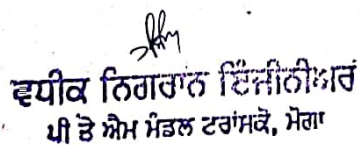 ਵਧੀਕ ਨਿਗਰਾਨ ਇੰਜੀਨੀਅਰ
ਪੀ ਤੇ ਐਮ ਮੰਡਲ ਟਰਾਂਸਕੋ, ਮੋਗਾ